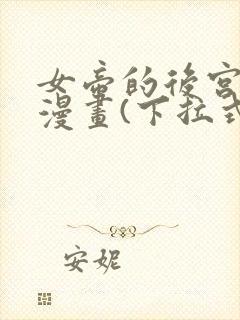 女帝的後宮
漫畫(下拉式
安妮